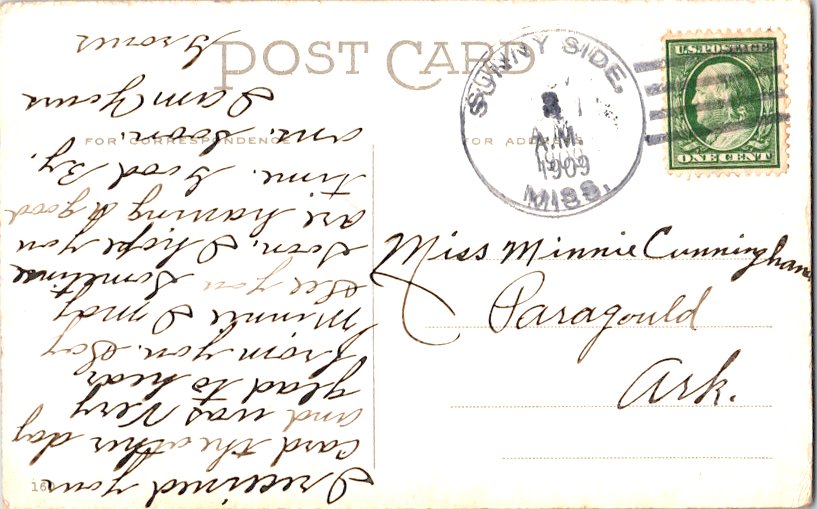 POST CARD
FOR CORRESPONDENCE
FOR ADDRESS
SUNNY SIDE,
A.M.
1909
MISS.
U.S. POSTAGE
ONE CENT
Miss Minnie Cunningham
Paragould
Ark.
I received your
card the other day
and was very
glad to hear
from you. Say
Minnie I may
see you sometime
soon. I hope you
are haning a good
time. Good By.
ans. soon.
I am Yours
160